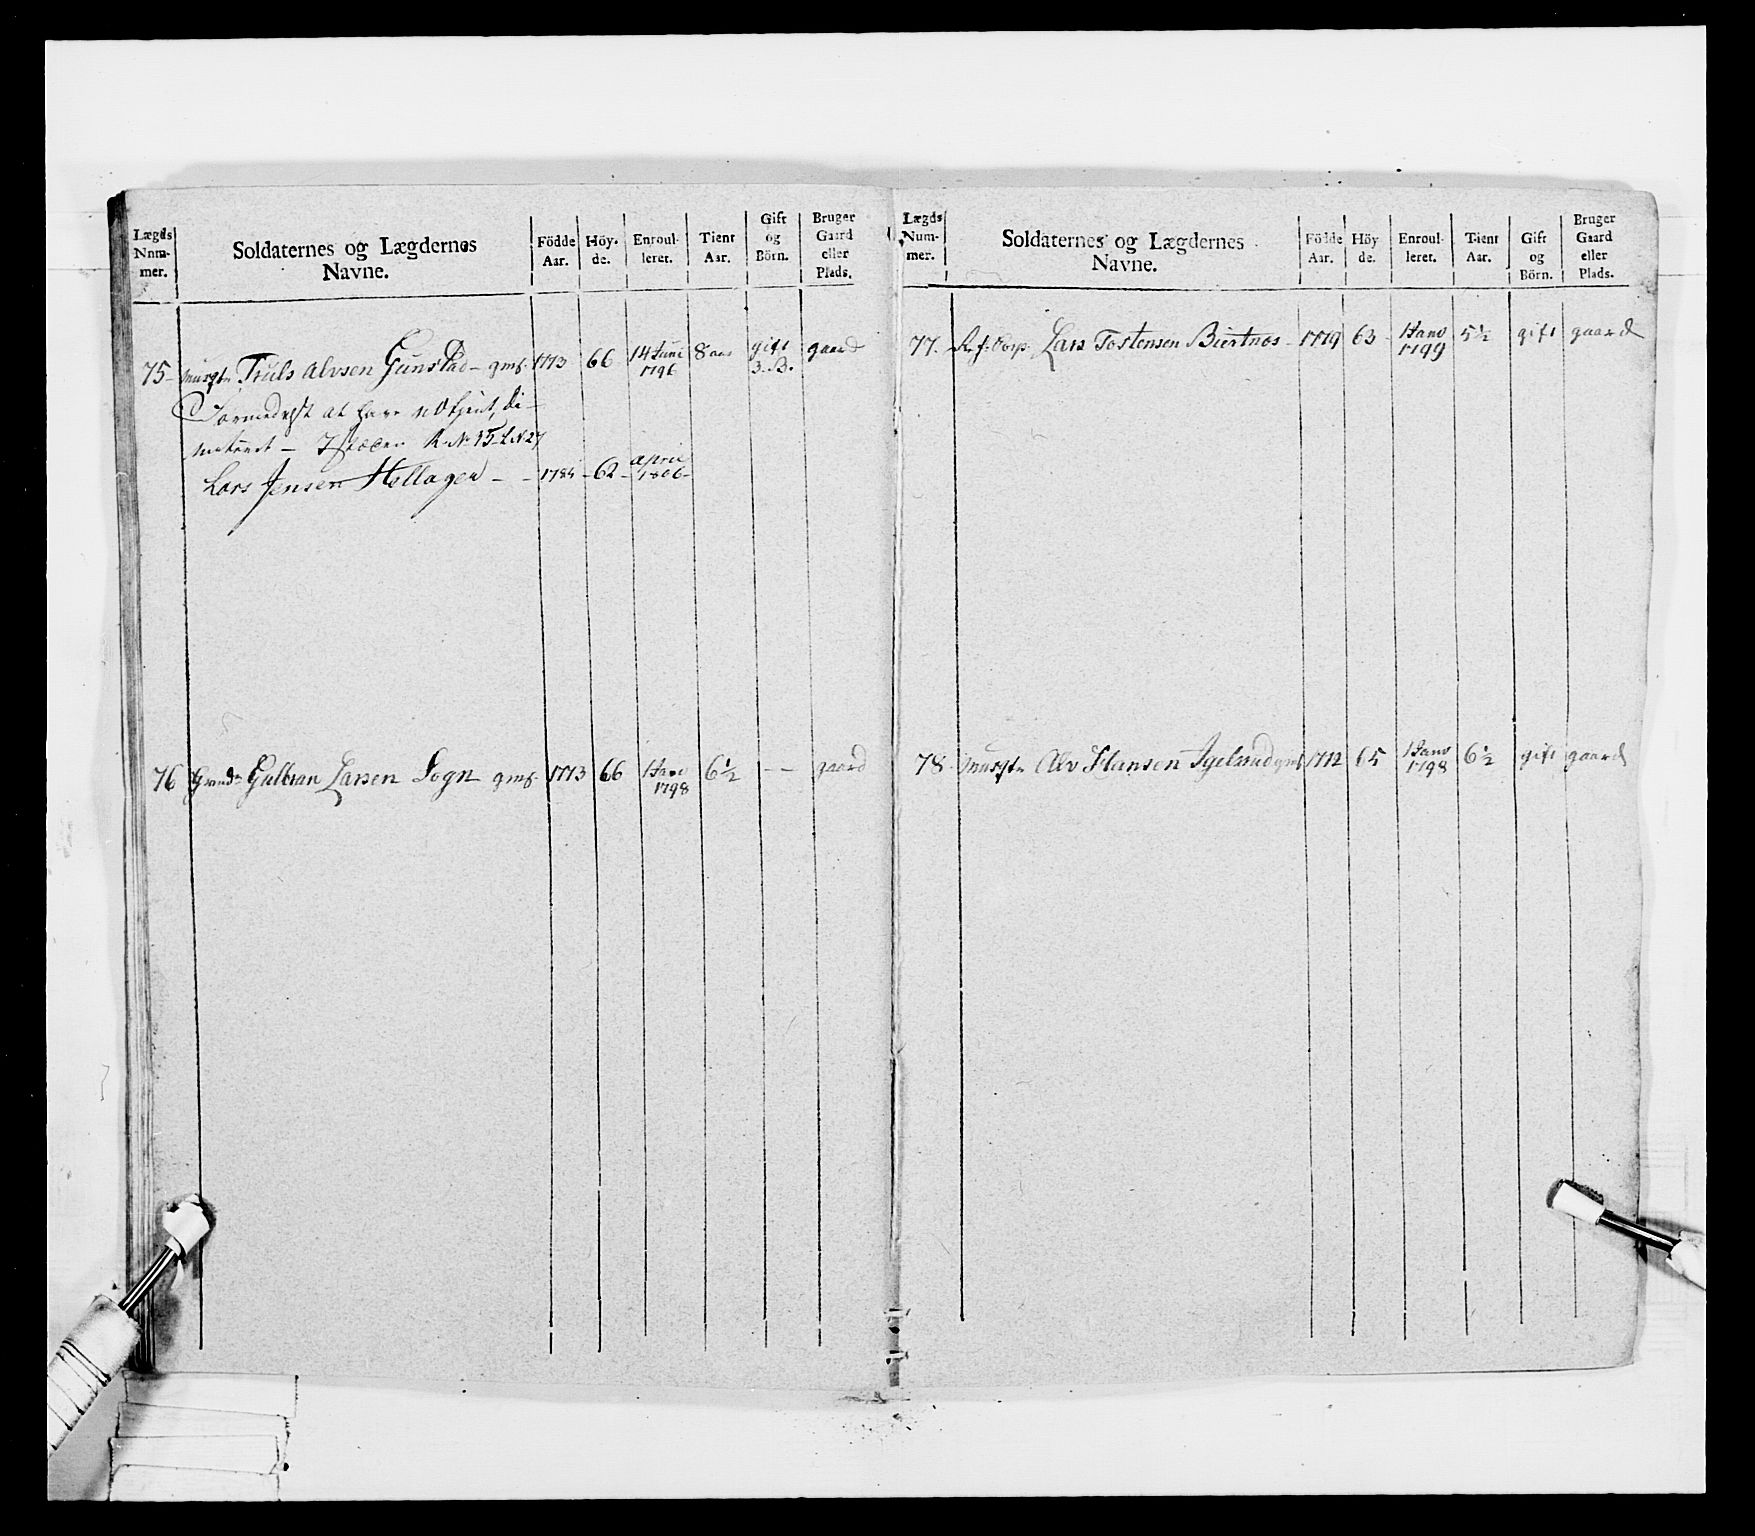 Lægds Num- mer.
Soldaternes og Lægdernes Navne.
Födde Aar.
Höy- de.
Enroul- leret.
Tient Aar.
Gift og Börn.
Bruger Gaard eller Plads.
75 Musqtr Truls Alvsen Gunstad - gms. 1773 66 14 Juni 1796 8 aar gift 3. B. gaard
at have
R. No 15 L No 27
Lars Jensen Hellagen - - 1784 - 62 - April 1806 -
76 Grend Gulbran Larsen Sogn gms. 1773 66 1 Janv 1798 6 1/2 - - gaard
Lægds Num- mer.
Soldaternes og Lægdernes Navne.
Födde Aar.
Höy de.
Enroul- leret.
Tient Aar.
Gift og Börn.
Bruger Gaard eller Plads.
77. Corp. Lars Tostensen Biertnes - 1779 63 1 Janv 1799 5 1/2 gift gaard
78 Musqtr Alv Hansen Igelsrud gms 1772 65 1 Janv 1798 6 1/2 gift gaard